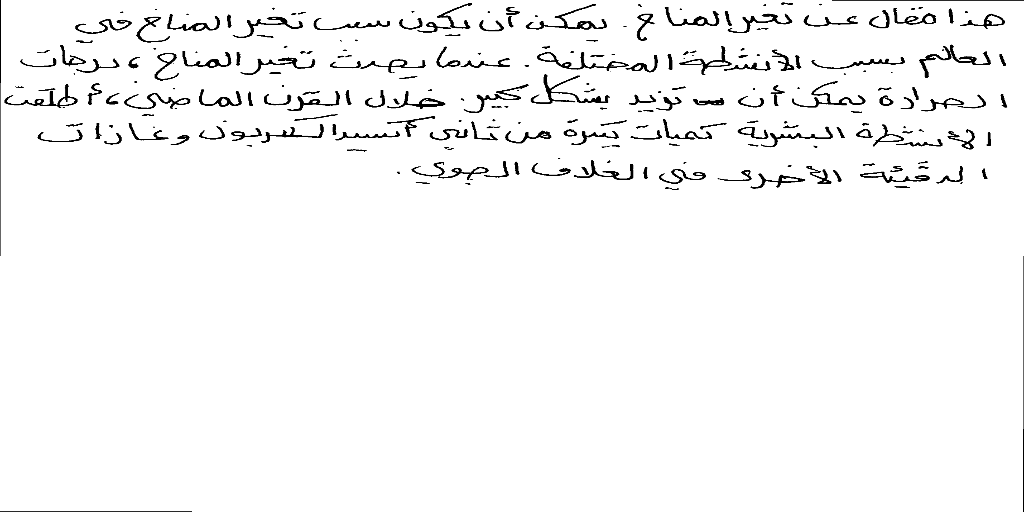 هذا مقال عن تغير المناخ. يمكن أن يكون سبب تغير المناخ في
العالم بسبب الأنشطة المختلفة. عندما يحدث تغير المناخ، درجات
الحرارة يمكن أن تزيد بشكل كبير. خلال القرن الماضي، أطلقت
الأنشطة البشرية كميات كبيرة من ثاني أكسيد الكربون وغازات
الدفيئة الأخرى في الغلاف الجوي.